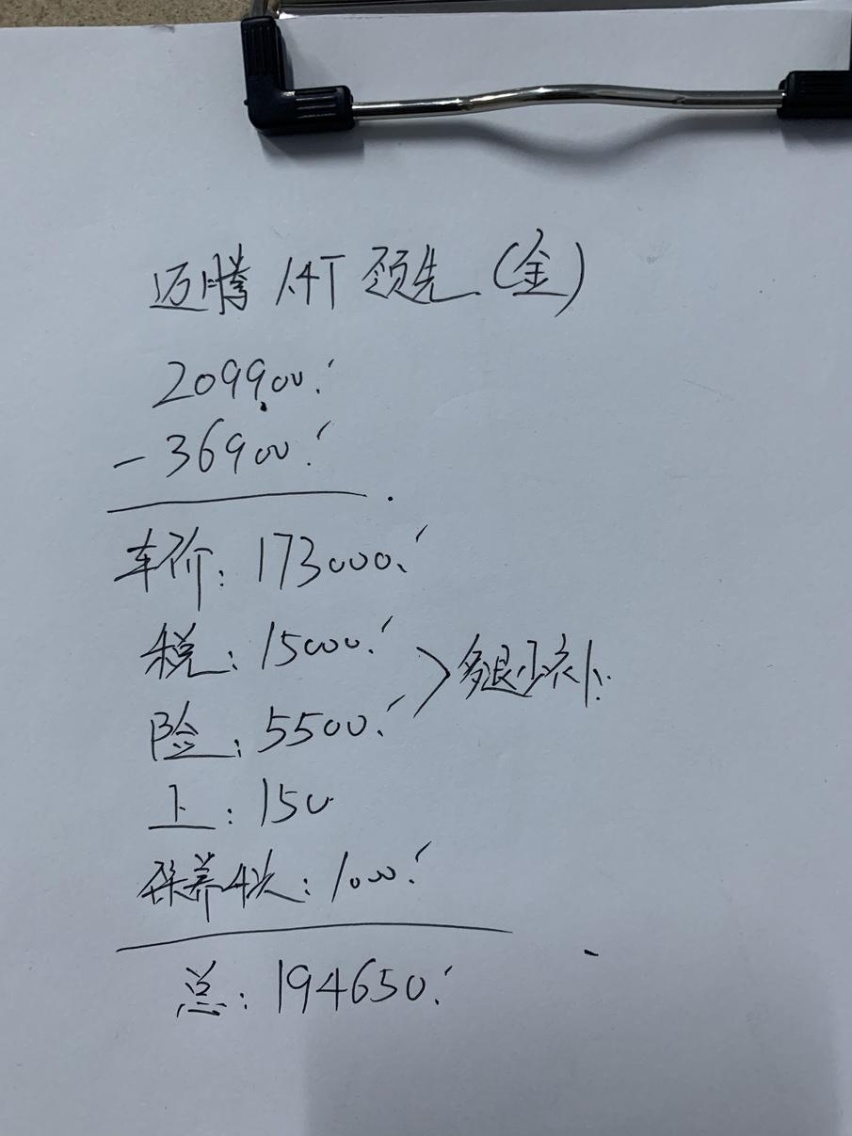 迈腾 1.4T 领先(金)
209900.
-36900.
车价: 173000.
税: 15000.
险: 5500.
多退少补.
上: 150
保养4次: 1000.
总: 194650.